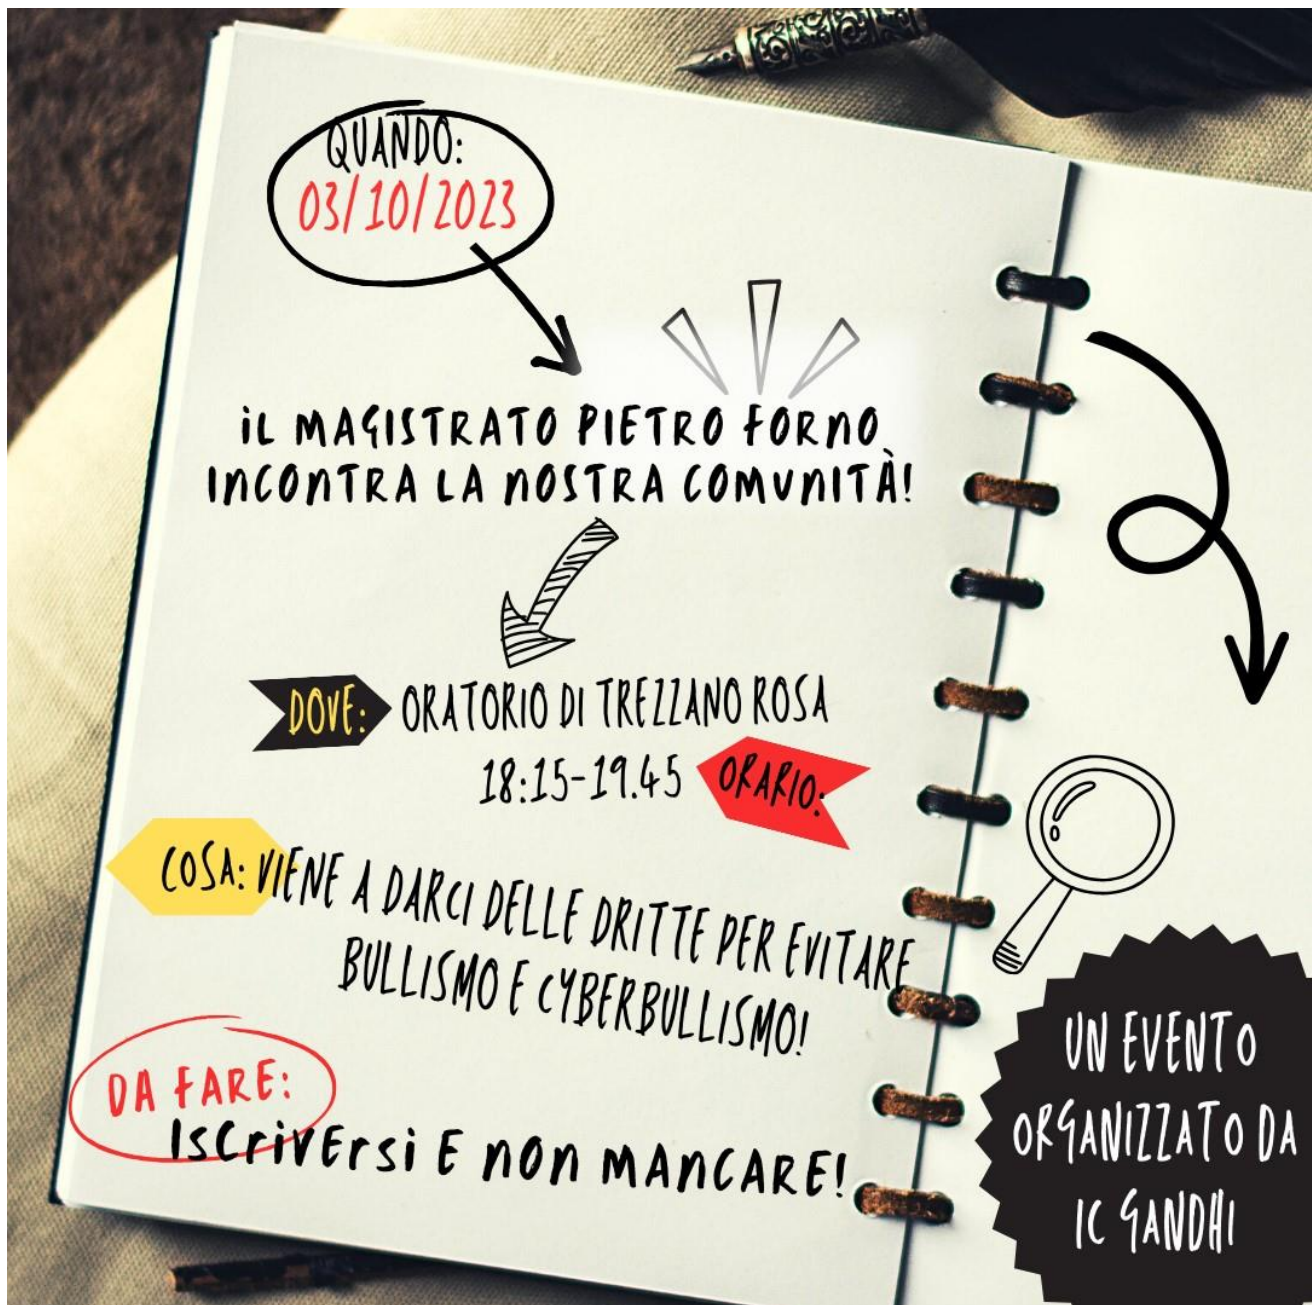 QUANDO:
03/10/2023
iL MAGISTRATO PIETRO FORNO
INCONTRA LA NOSTRA COMUNITÀ!
DOVE: ORATORIO DI TREZZANO ROSA
18:15-19.45 ORARIO:
COSA: VIENE A DARCI DELLE DRITTE PER EVITARE
BULLISMO E CYBERBULLISMO!
DA FARE:
IscrivErsi E non MANCARE!
UN EVENTO
ORGANIZZATO DA
IC GANDHI